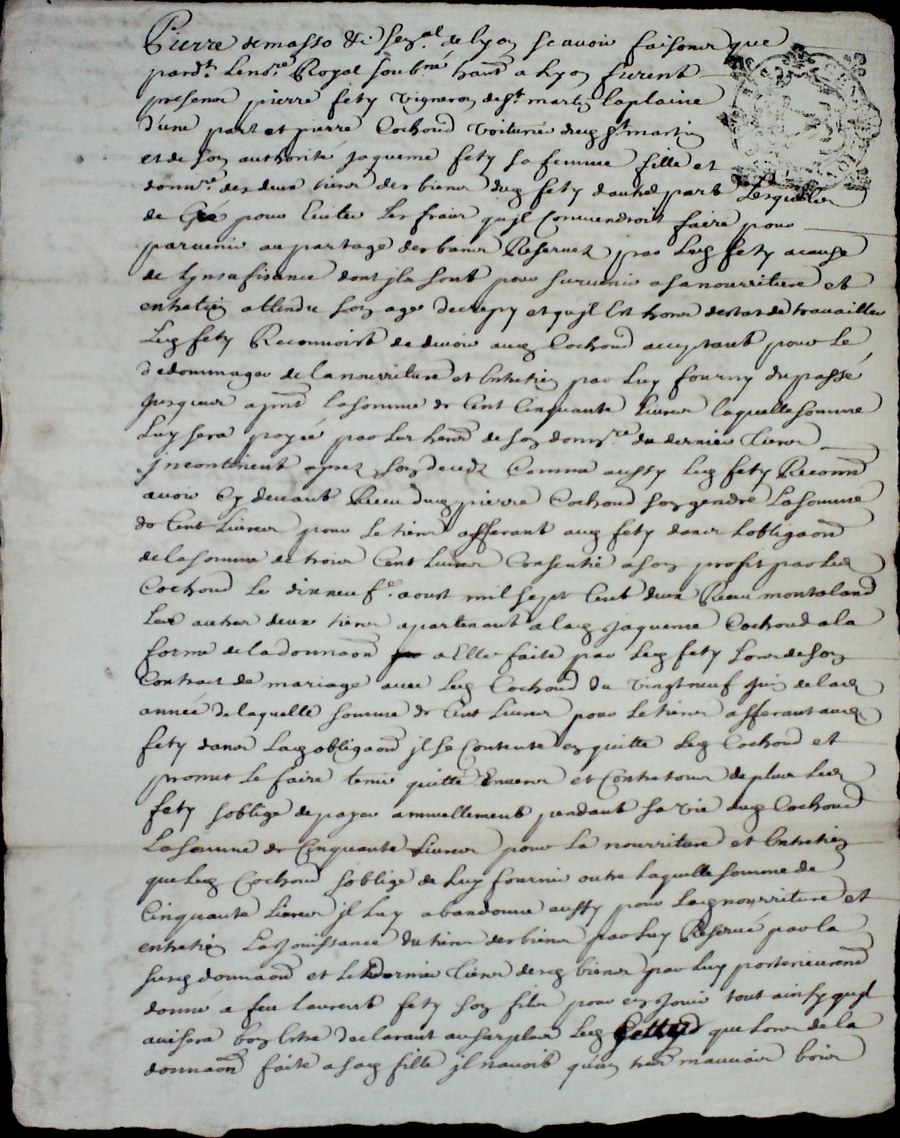 Pierre demasso &c sen.al de lyon scavoir faisons que
pardt. le no.re Royal soub.né hant a Lyon furent
presens pierre fety vigneron de St. martin laplaine
d'une part et pierre Cochoud voiturié dud St. martin
et de son authorité jaqueme fety sa femme fille et
donn.re des deux tiers des biens dud fety d'autre part Lesquels
de Gré pour Eviter les fraix qu'il Conviendroit faire pour
parvenir au partage des biens Reservez par Led fety a cause
de Lynsufisance dont ils sont pour survenir a sa nourriture et
entretien attendu son age decrepy et qu'il Est hors destat de travailler
Led fety Reconnoist de devoir aud Cochoud acceptant pour Le
dedommager de la nourriture et Entretien par Luy fourny du passé
jusques a pnt la somme de Cent Cinquante Livres laquelle somme
Luy sera payée par les hers de son dom.re du dernier tiers
jncontinent apres son decedz Comme aussy Led fety Reconn
avoir Cy devant Receu dud pierre Cochoud son gendre La somme
de Cent Livres pour Le tiers afferant aud fety dans Lobligaon
de la somme de trois Cent Livres Consentie a son profit par Led
Cochoud Le dixneuf.e aoust mil sept Cent deux Receu montaland
Les autres deux tiers apartenant a lad jaqueme Cochoud a la
forme de la donnaon a Elle faite par Led fety Lors de son
Contract de mariage avec Led Cochoud du vingtneuf juin de lad
année de laquelle somme de Cent Livres pour Le tiers afferant aud
fety dans Lad obligaon il se Contente en quitte Led Cochoud et
promet Le faire tenir quitte Envers et Contre tous de plus Led
fety soblige de payer annuellement pendant sa vie aud Cochoud
La somme de Cinquante Livres pour La nourriture et Entretien
que Led Cochoud soblige de Luy fournir outre laquelle somme de
Cinquante Livres il Luy abandonne aussy pour Lad nourriture et
entretien La jouissance du tiers des biens par Luy Reservé par la
susd donnaon et Le dernier tiers desd biens par Luy posterieurem
donné a feu Laurent fety son fils pour en jouir tout ainsy qu'il
avisera bon Estre declarant au surplus Led que Lors de la
donnaon faite a sad fille il n'avoit qu'un tres mauvais bois